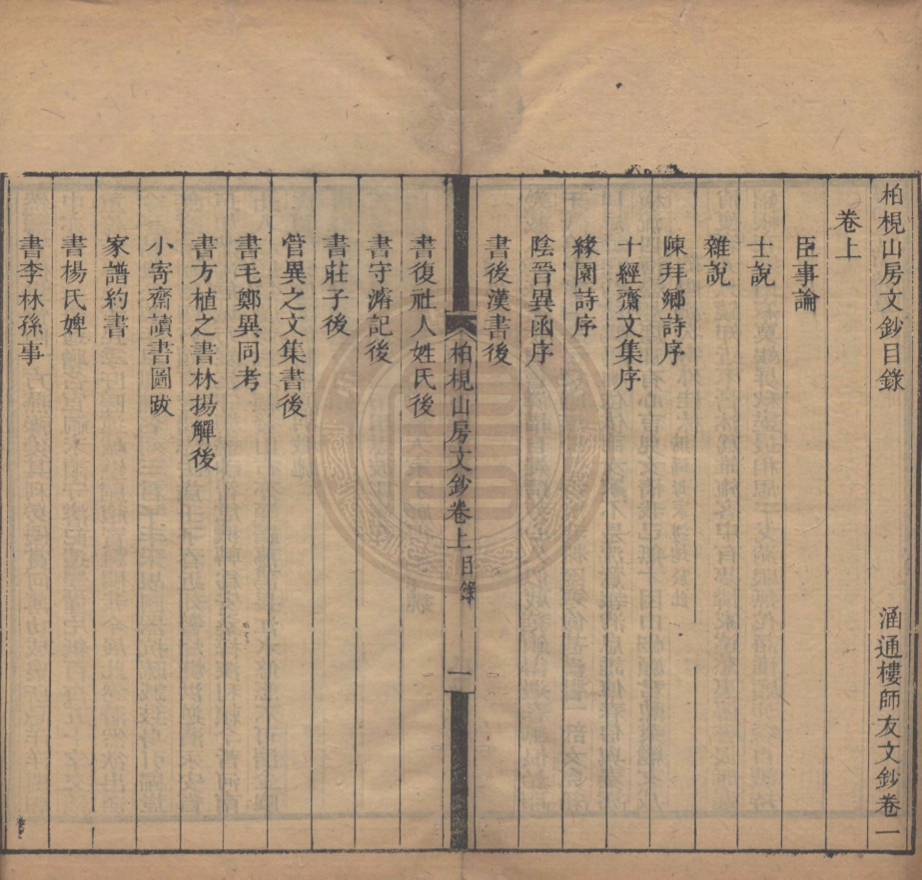 柏梘山房文鈔目錄
涵通樓師友文鈔卷一
卷上
臣事論
士說
雜說
陳拜薌詩序
十經齋文集序
緣園詩序
陰晉異函序
書後漢書後
柏梘山房文鈔卷上目錄 一
書復社人姓氏後
書守濬記後
書莊子後
管異之文集書後
書毛鄭異同考
書方植之書林揚觶後
小寄齋讀書圖跋
家譜約書
書楊氏婢
書李林孫事